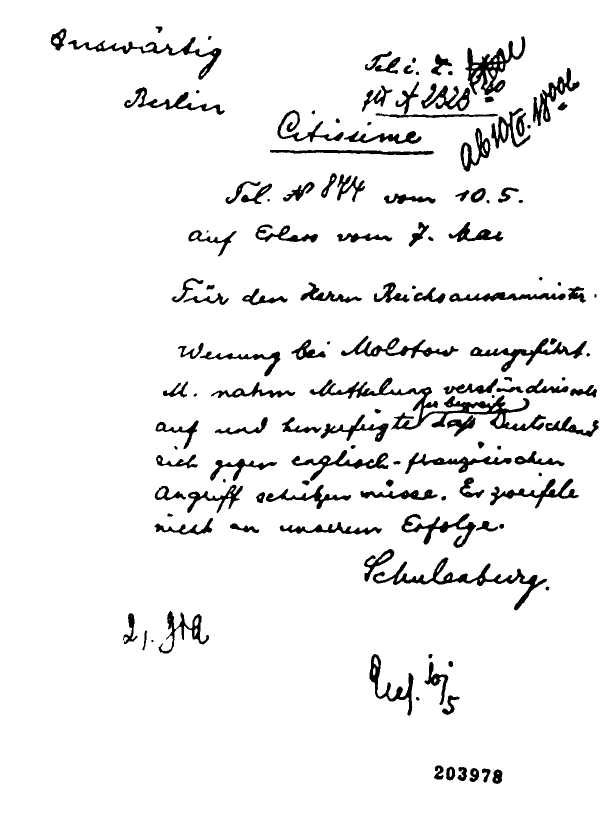 Auswärtig
Berlin
Tel. i. Z.
A 2323
Citissime
ab 10/5. 18 00 Uh
Tel. № 874 vom 10. 5.
auf Erlass vom 7. Mai
Für den Herrn Reichsaussenminister.
Weisung bei Molotow ausgeführt.
M. nahm Mitteilung verständnisvoll
er begreife
auf und hinzufügte dass Deutschland
sich gegen englisch-französischen
Angriff schützen müsse. Er zweifele
nicht an unserem Erfolge.
Schulenburg.
2).
10/5
203978